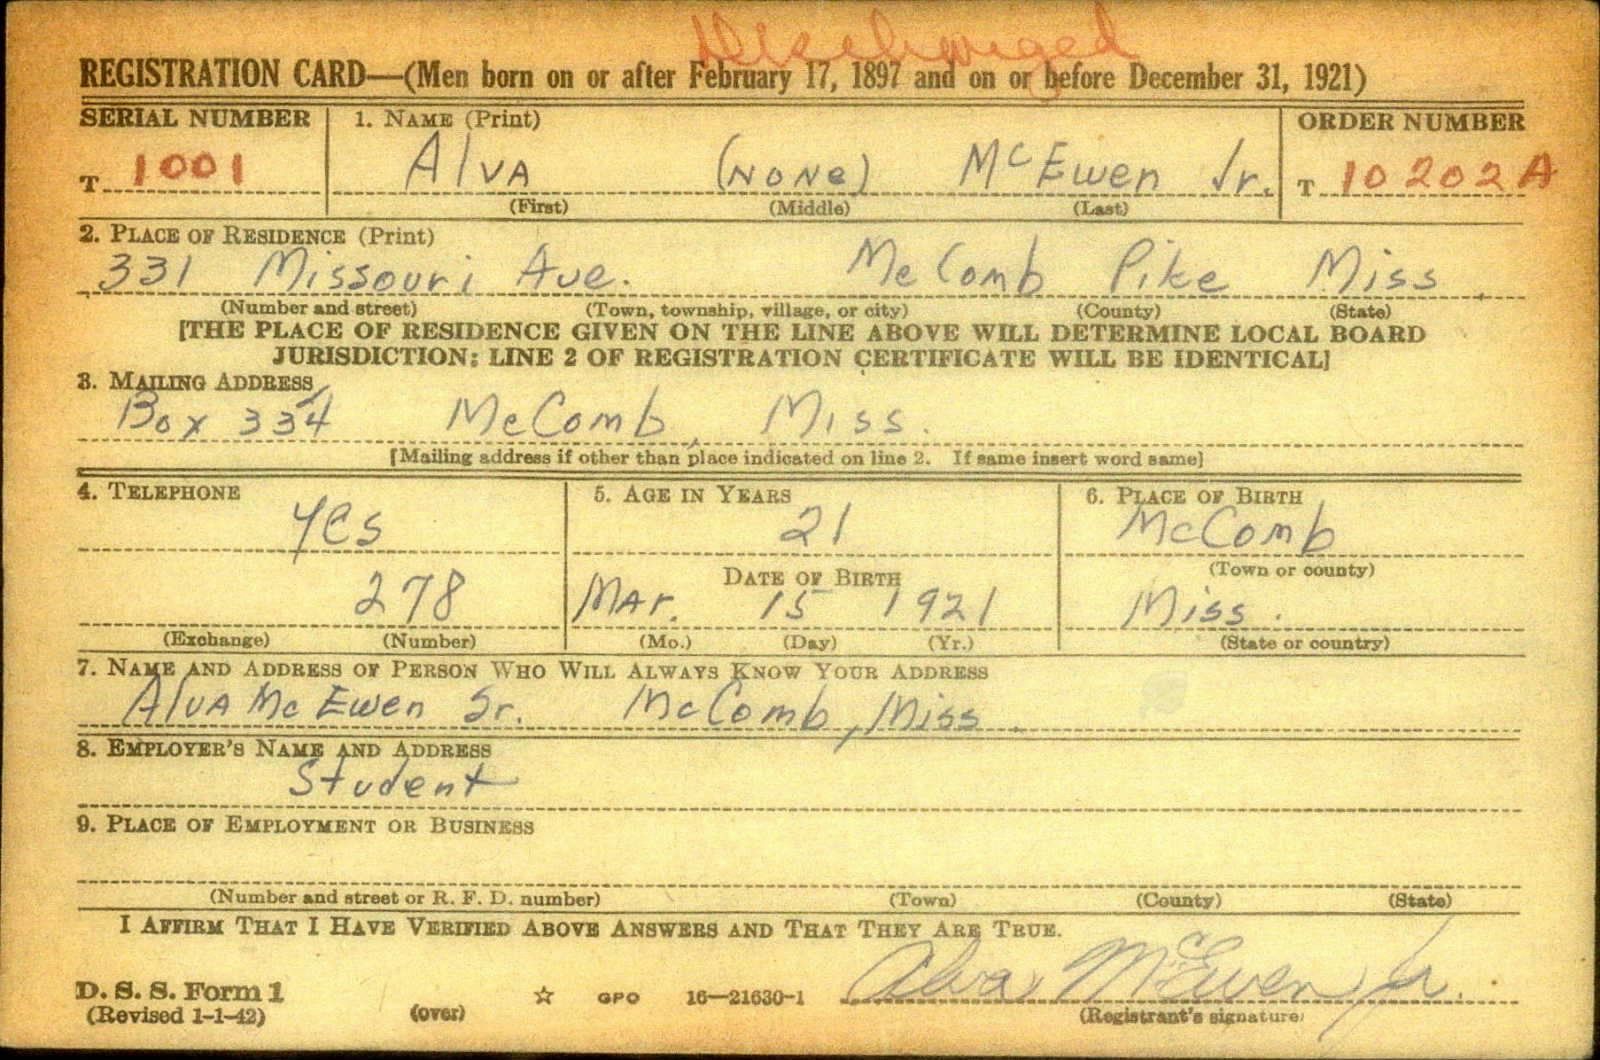 Discharged
REGISTRATION CARD—(Men born on or after February 17, 1897 and on or before December 31, 1921)
SERIAL NUMBER 1. NAME (Print) ORDER NUMBER
T 1001 Alva (None) McEwen Jr. T 10202A
(First) (Middle) (Last)
2. PLACE OF RESIDENCE (Print)
331 Missouri Ave. McComb Pike Miss
(Number and street) (Town, township, village, or city) (County) (State)
[THE PLACE OF RESIDENCE GIVEN ON THE LINE ABOVE WILL DETERMINE LOCAL BOARD
JURISDICTION; LINE 2 OF REGISTRATION CERTIFICATE WILL BE IDENTICAL]
3. MAILING ADDRESS
Box 334 McComb, Miss.
[Mailing address if other than place indicated on line 2. If same insert word same]
4. TELEPHONE 5. AGE IN YEARS 6. PLACE OF BIRTH
Yes 21 McComb
DATE OF BIRTH (Town or county)
278 Mar. 15 1921 Miss.
(Exchange) (Number) (Mo.) (Day) (Yr.) (State or country)
7. NAME AND ADDRESS OF PERSON WHO WILL ALWAYS KNOW YOUR ADDRESS
Alva McEwen Sr. McComb, Miss.
8. EMPLOYER'S NAME AND ADDRESS
Student
9. PLACE OF EMPLOYMENT OR BUSINESS
(Number and street or R. F. D. number) (Town) (County) (State)
I AFFIRM THAT I HAVE VERIFIED ABOVE ANSWERS AND THAT THEY ARE TRUE.
D. S. S. Form 1 Alva McEwen Jr.
(Revised 1-1-42) (over) ☆ GPO 16—21630-1 (Registrant's signature)